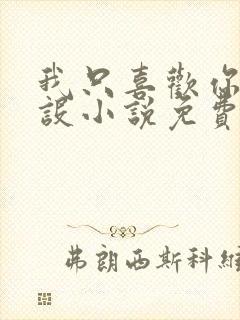 我只喜歡你
設小說免費
弗朗西斯科維